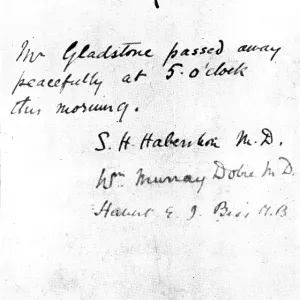 Mr Gladstone passed away
peacefully at 5 o'clock
this morning.
S. H. Habershon M.D.
Wm Murray Dobie M.D.
Hubert E. J. Biss M.B